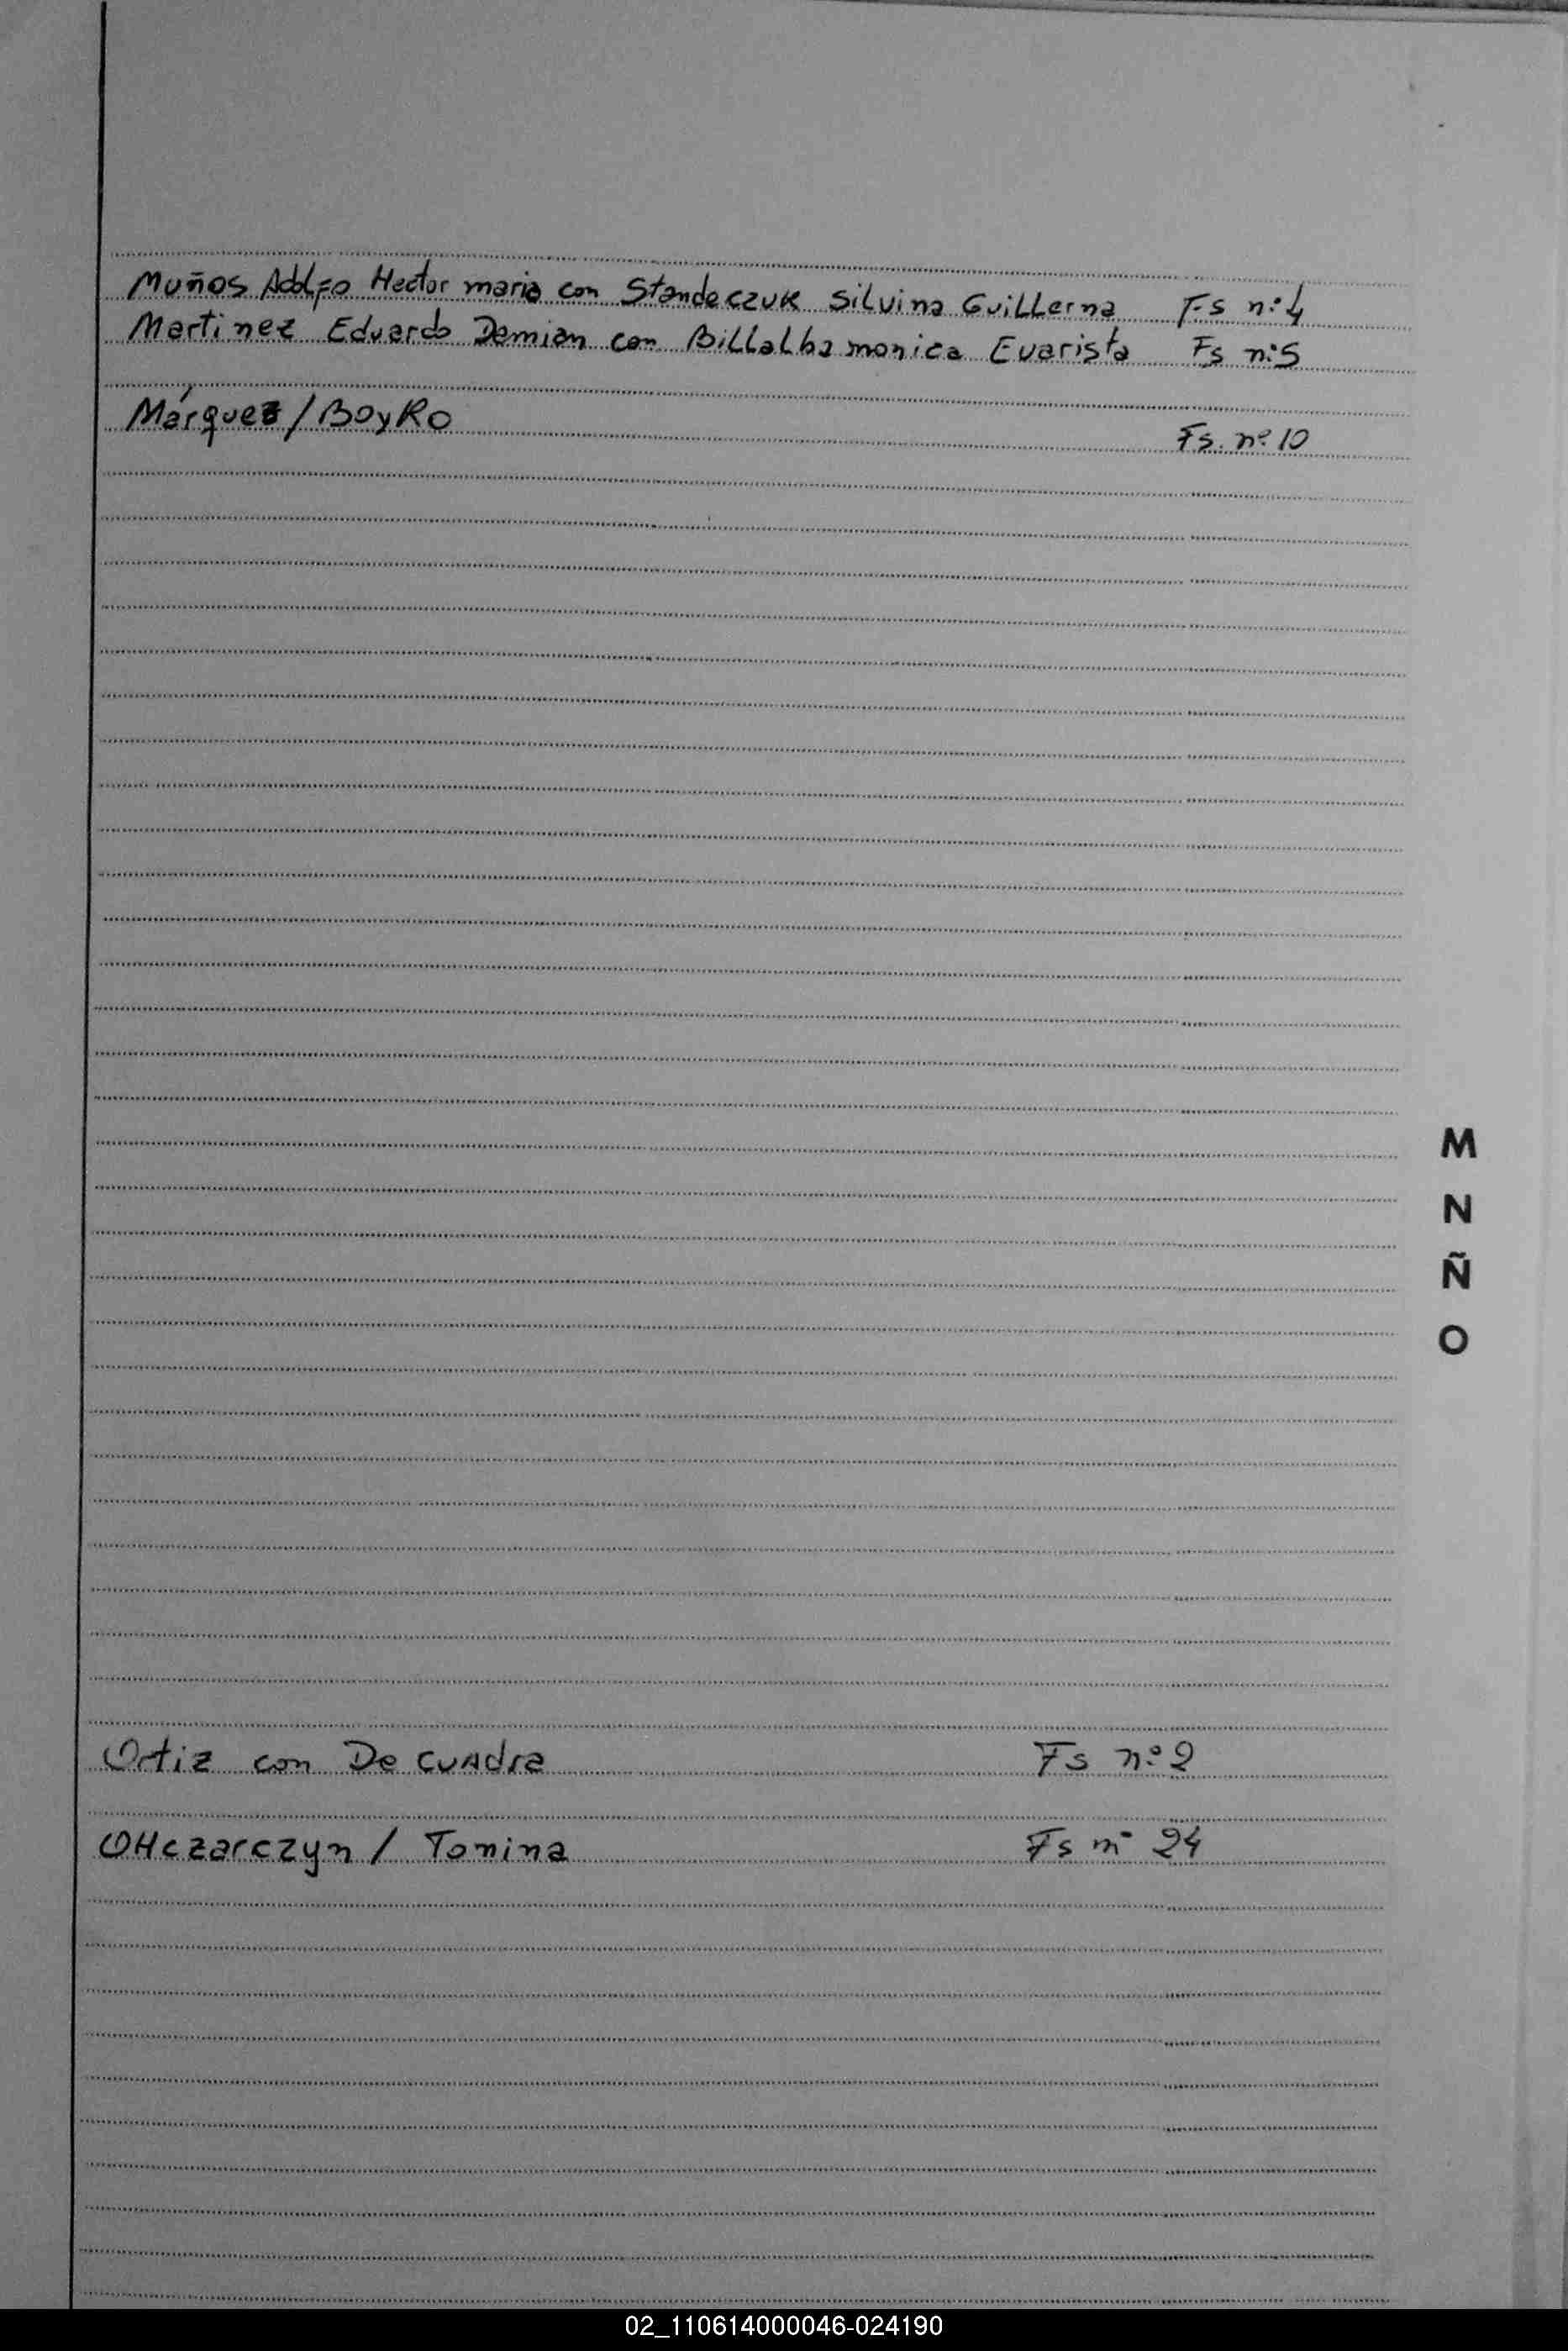 Muños Adolfo Hector maria con Standeczuk Silvina Guillerna Fs nº 4
Martinez Eduardo Demian con Billalba monica Evarista Fs nº 5
Márquez / Boyko Fs. nº 10
M
N
Ñ
O
Ortiz con De cuadra Fs nº 2
OHczarczyn / Tonina Fs nº 24
02_110614000046-024190